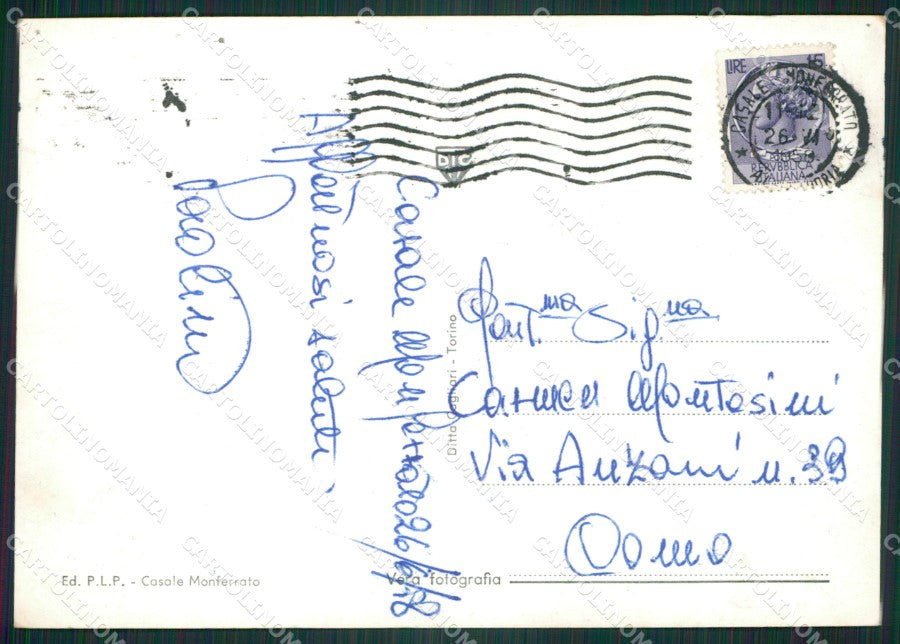 Casale Monferrato 26/6/58
Affettuosi saluti
Paolino
Gent.ma Sig.na
Carmen Montesini
Via Anzani n. 39
Como
LIRE 15
REPVBBLICA
ITALIANA
CASALE MONFERRATO
26 VI
D T C
Ditta Cagliari - Torino
Ed. P.L.P. - Casale Monferrato
Vera fotografia
CARTOLINOMANIA